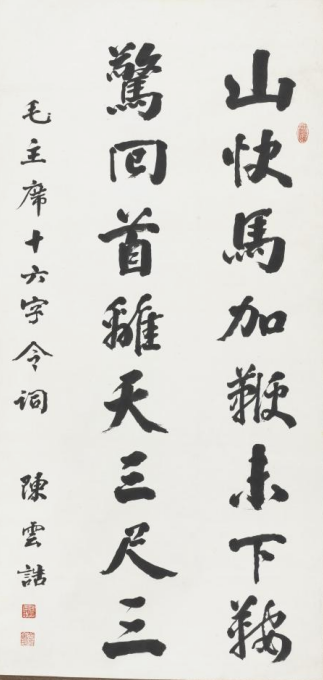 山快馬加鞭未下鞍
驚回首離天三尺三
毛主席十六字令詞 陳雲誥